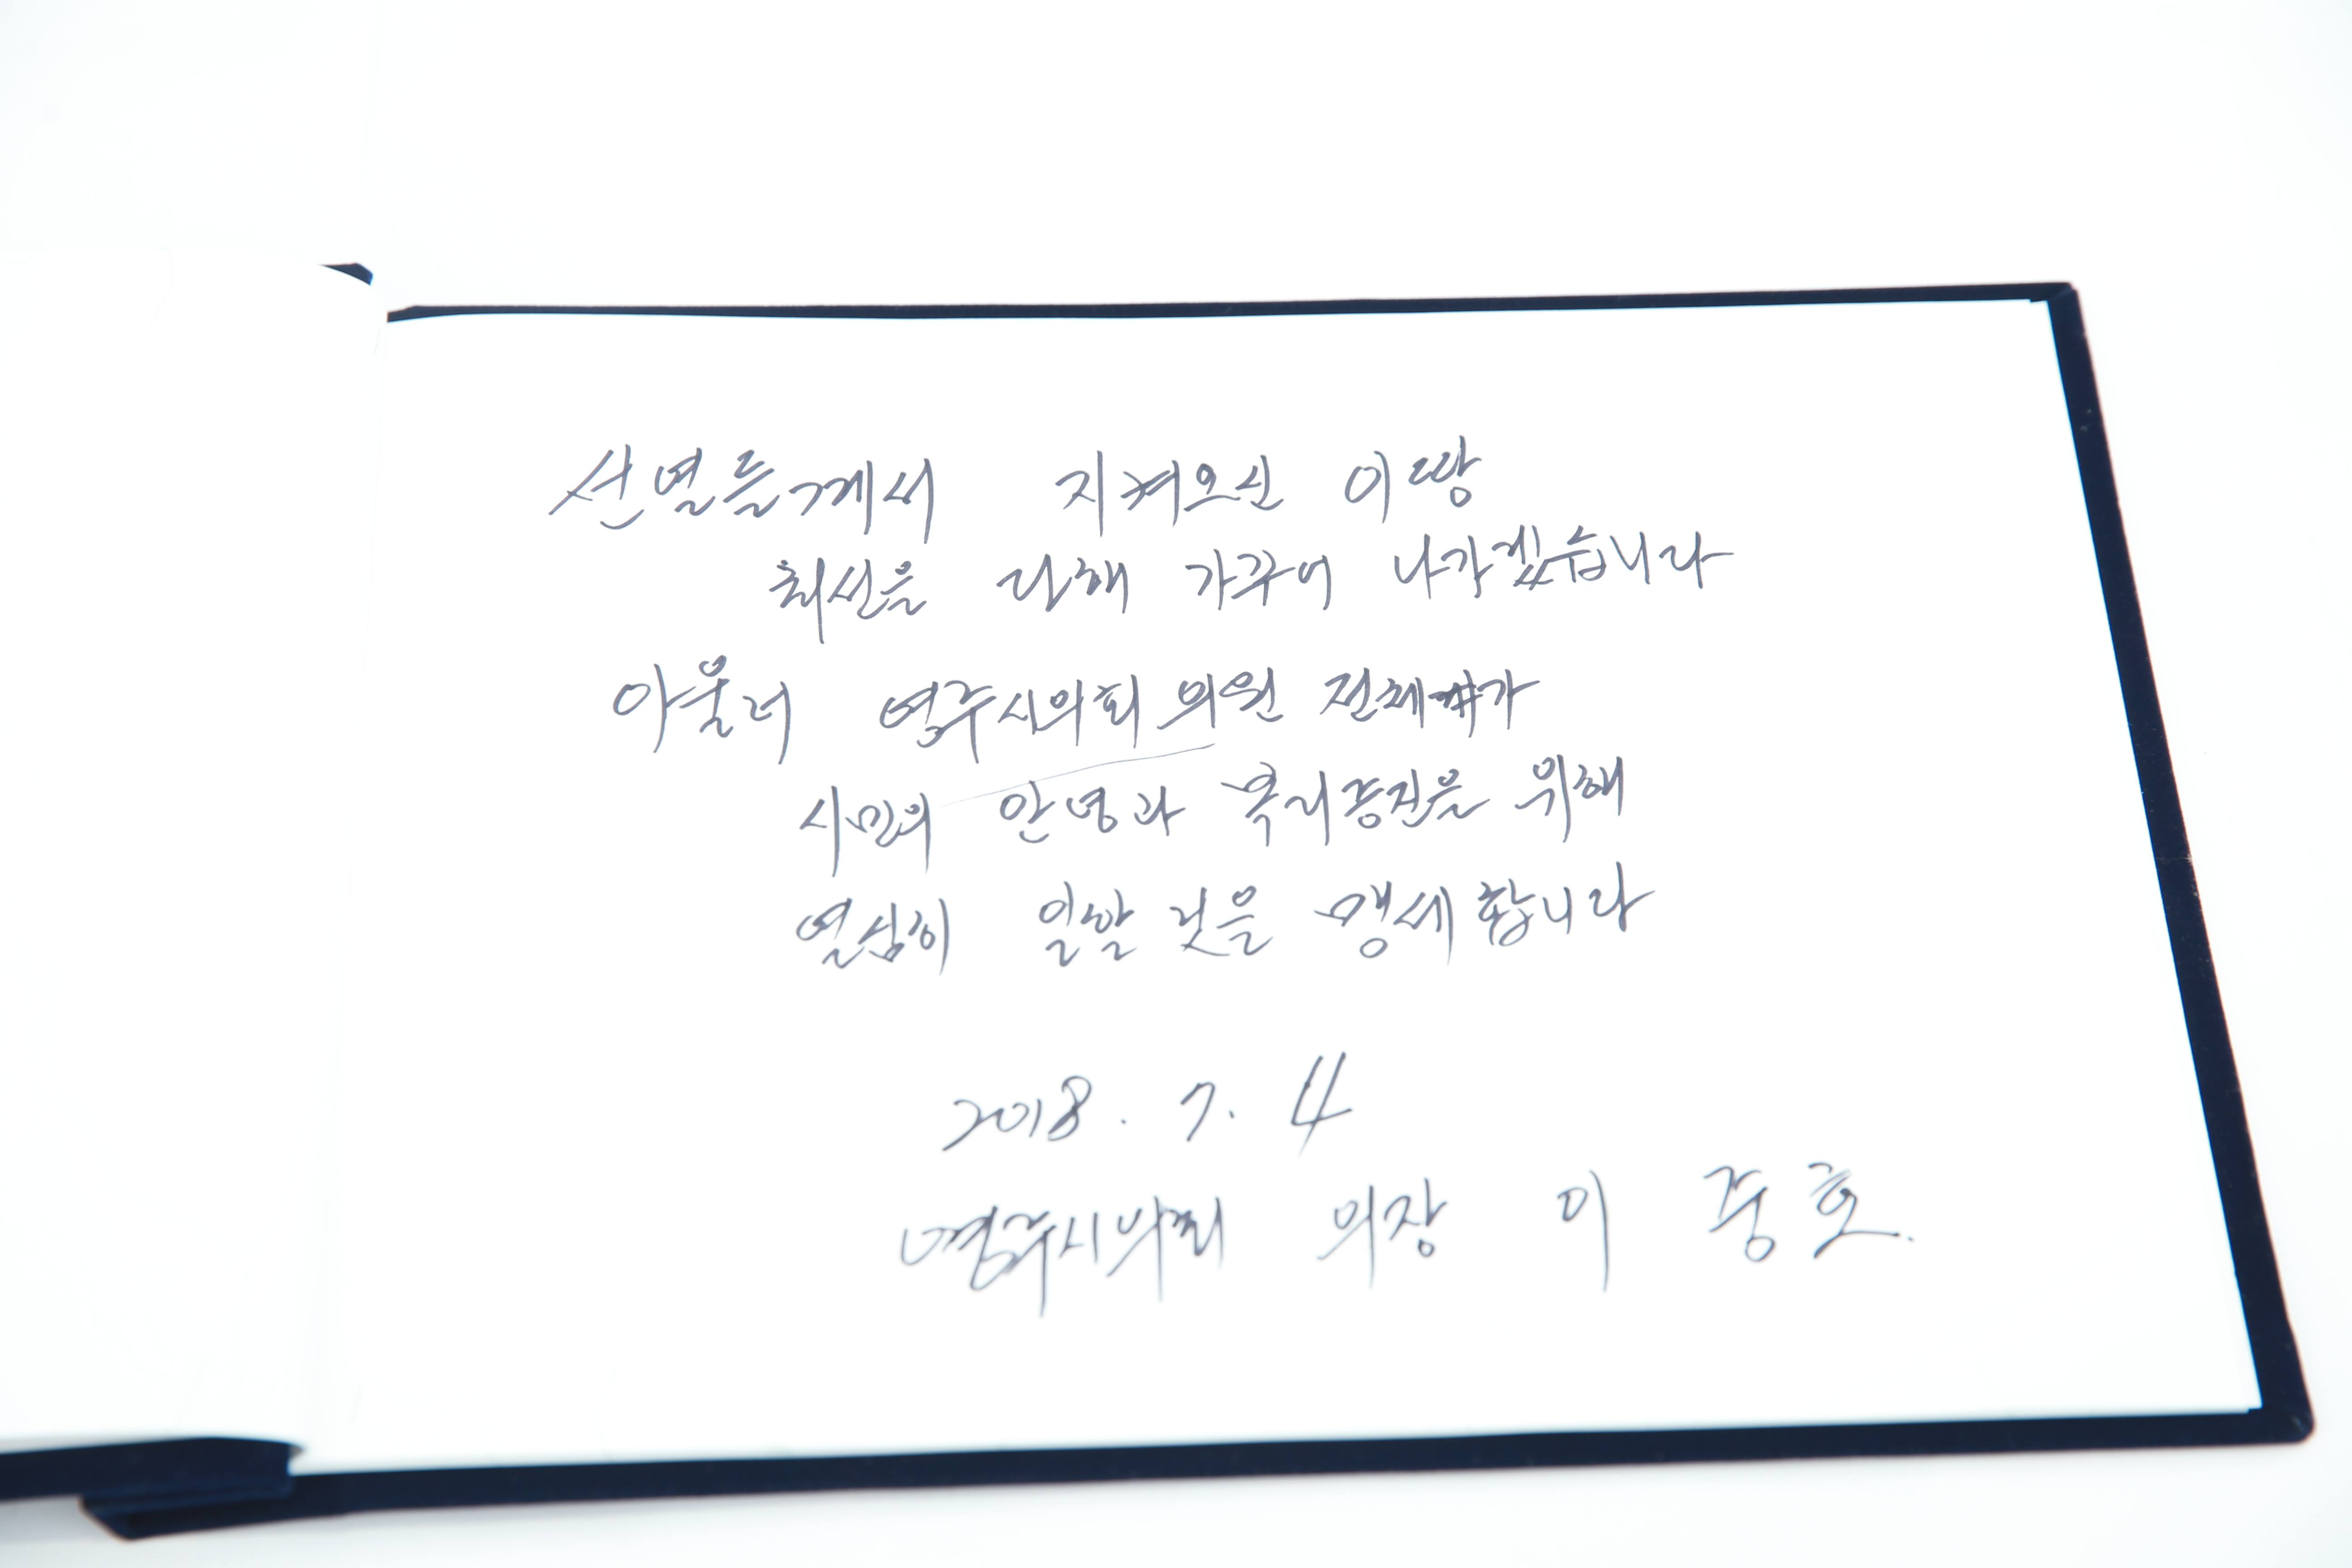 선열들께서 지켜오신 이땅
최선을 다해 가꾸어 나가겠습니다
아울러 영주시의회 의원 전체가
시민의 안녕과 복리증진을 위해
열심히 일할 것을 맹세합니다
2018. 7. 4
영주시의회 의장 이 중 호.